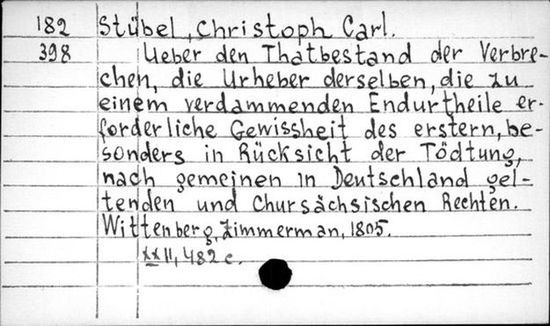 182 Stübel, Christoph Carl.
398 Ueber den Thatbestand der Verbre-
chen, die Urheber derselben, die zu
einem verdammenden Endurtheile er-
forderliche Gewissheit des erstern, be-
sonders in Rücksicht der Tödtung,
nach gemeinen in Deutschland gel-
tenden und Chursächsischen Rechten.
Wittenberg, Zimmerman, 1805.
xxII, 482 c.